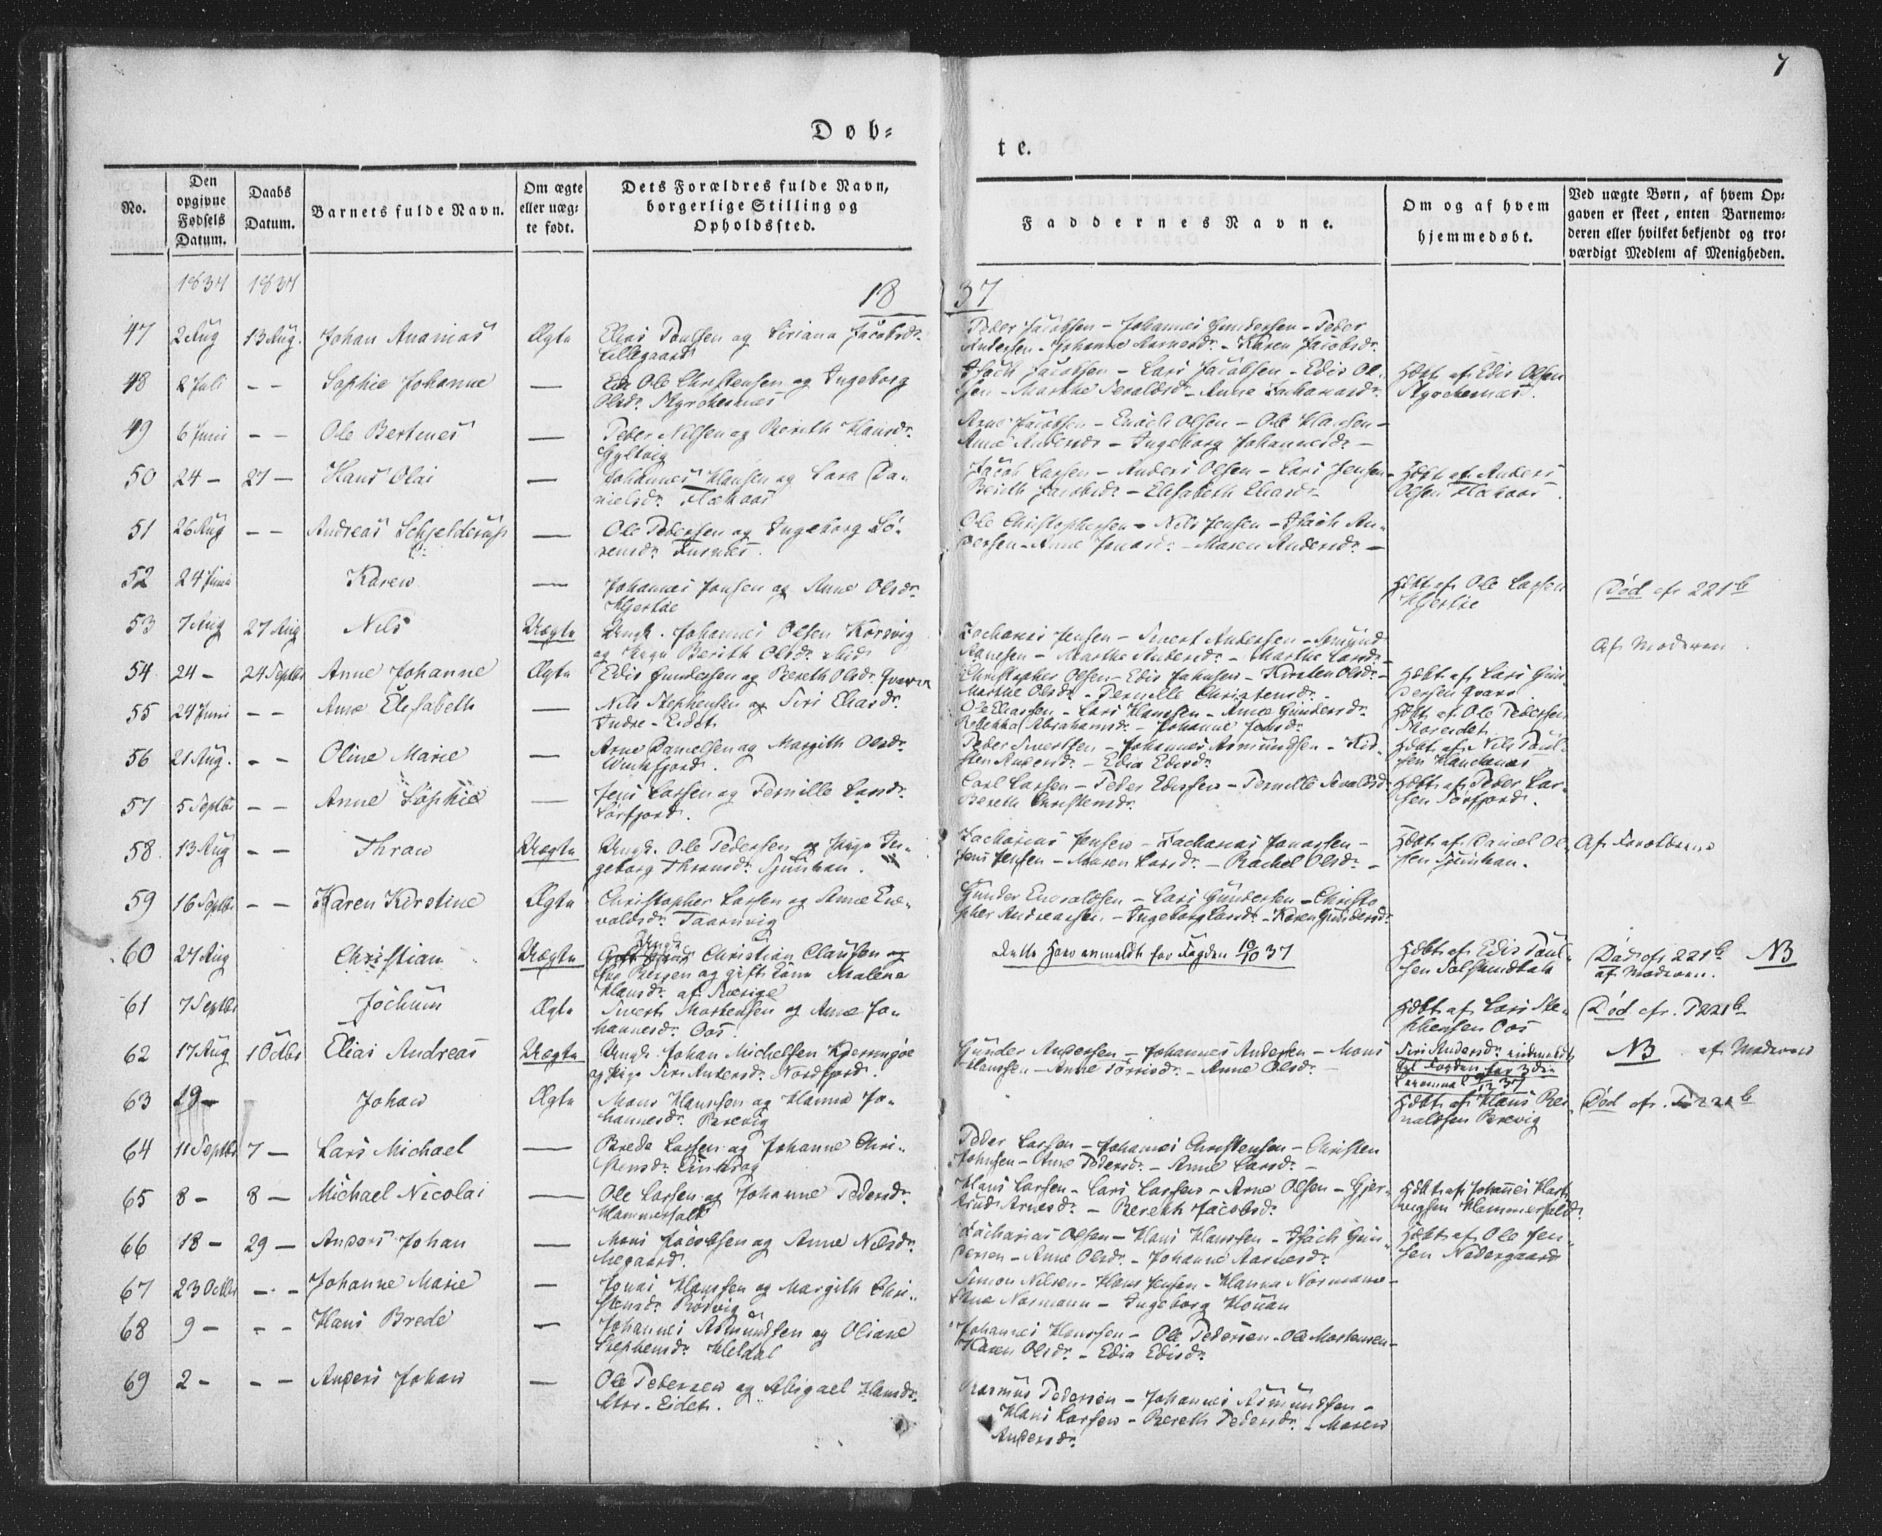 7
Døb-
te.
No.
Den opgivne Fødsels Datum.
Daabs Datum.
Barnets fulde Navn.
Om ægte eller uægte født.
Dets Forældres fulde Navn, borgerlige Stilling og Opholdssted.
Faddernes Navne.
Om og af hvem hjemmedøbt.
Ved uægte Børn, af hvem Opgaven er skeet, enten Barnemoderen eller hvilket bekjendt og troværdigt Medlem af Menigheden.
1837 1837
18 37
47 2 Aug 13 Aug. Johan Ananias Ægte Elias Poulsen og Siriana Jacobsdr.
Lillegaard
Peder Jacobsen - Johannes Gundersen - Peder
Andersen - Johanne Aarnesdr. - Karen Jacobsdr.
48 2 Juli - - Sophie Johanne — Ole Christensen og Ingeborg
Olsdr.
Isach Jacobsen - Lars Jacobsen - Edis Ol-
sen - Marthe - Anne Zachariasdr.
Hdbt af Edis Olsen
49 6 Juni - - Ole Bertines — Peder Nilsen og Berith Hansdr.
Gyltvig
Arne Jacobsen - Enoch Olsen - Ole Hansen -
Anne Andersdr - Ingeborg Johannesdr -
50 24 - 27 - Hans Olai — Johannes Hansen og Sara Da-
nielsdr.
Jacob Larsen - Anders Olsen - Lars Jensen -
Berith Jacobsdr - Elisabeth Eliasdr -
Hdbt af Anders
Olsen
51 26 Aug - - Andreas Schjelderup — Ole Pedersen og Ingeborg Lo-
rensdr.
Ole Christophersen - Nils Jensen - Isach An-
dersen - Anne Jonasdr. - Maren Andersdr. -
52 24 Juni Karen — Johannes Jonsen og Anne Olsdr.
Hdbt af Ole Larsen
Død cfr 221b
53 7 Aug 27 Aug Nils Uægte Ungk. Johannes Olsen Korsvig
og Pige Berith Olsdr. ibid
Zacharias Jensen - Sivert Andersen -
Hansen - Marthe Andersdr. - Marthe Larsdr. -
Af Moderen
54 24 - 24 Septbr Anne Johanne Ægte Edis Gundersen og Bereth Olsdr. Qvarv
Christopher Olsen - Edis Johnsen - Kirsten Olsdr. -
Marthe Olsdr. - Pernelle Christensdr. -
Hdbt af Lars Gun-
dersen Qvarv
55 24 Juni - - Ane Elisabeth — Nils Stephensen og Siri Eliasdr.
Indre-Eidet
Ole Eliassen - Lars Hanssen - Anne Gundersdr. -
Rebekka Abrahamsdr. - Johanne Jonsdr.
Hdbt af Ole Pedersen
56 21 Aug. - - Oline Marie — Arne Danielsen og Margith Olsdr.
Peder Sivertsen - Johannes Asmundsen - Kir-
sten Andersdr. - Edia Edisdr.
Hdbt af Nils Paul-
sen
57 5 Septbr - - Anne Sophie — Jens Larsen og Pernille Larsdr.
Sørfjord.
Carl Larsen - Peder Edissen - Pernelle
Bereth Christensdr.
Hdbt af Peder Lar-
sen Sørfjord.
58 13 Aug - - Thron Uægte Ungk. Ole Pedersen og Pige In-
geborg Thronsdr.
Zacharias Jensen - Zacharias Jonassen -
Jens Jensen - Maren Larsdr. - Rachel Olsdr. -
Hdbt af Daniel Ol-
sen
Af Forældrene
59 16 Septbr - - Karen Kirstine Ægte Christopher Larsen og Anne Ene-
valdsdr. Taarnvig
Gunder Enevaldsen - Lars Gundersen - Christo
pher Andreassen. - Ingeborg Larsdr. - Karen Gundersdr.
60 27 Aug Christian Uægte Ungk. Christian Clausen og
Bergen og gift Kone Malene
Hansdr. af Sverige
Dette Horv anmeldt for Fogden 10/10 37
Hdbt af Edis Paul-
sen
Død cfr 221b
af Moderen.
NB
61 7 Septbr Jochum Ægte Sivert Mortensen og Anne Jo-
hannesdr. Oos
Hdbt. af Lars Ste-
phensen Oos
Død cfr. P221b
62 17 Aug 1 Octbr Elias Andreas Uægte Ungk. Johan Michelsen Kjerringøe
og Pige Siri Andersdr. Nordfjord.
Gunder Andersen - Johannes Andersen - Mons
Hanssen - Anne Torrisdr. - Anne Olsdr. -
Siri Andersdr.
NB af Moderen
63 29 - Johan Ægte Mons Hanssen og Hanna Jo-
hannesdr. Brevig
Hdbt af Hans
Død cfr. P221b
64 11 Septbr 7 - Lars Michael — Brede Larsen og Johanne Chri-
stensdr.
Peder Larsen - Johannes Christensen - Christen
Johnsen - Ane Pedersdr. - Anne Larsdr. -
65 8 - 8 - Michael Nicolai — Ole Larsen og Johanne Pedersdr.
Hammerfald
Hans Larsen - Lars Larsen - Arne Olsen - Gjer-
trud Arnesdr. - Bereth Jacobsdr.
Hdbt af Johannes Hart-
vigsen Hammerfald.
66 18 - 29 - Anders Johan — Mons Jacobsen og Anne Nilsdr.
Megaard.
Zacharias Olsen - Hans Hanssen - Isach Gun-
dersen - Anne Olsdr. - Johanne Aarnesdr.
Hdbt af Ole Jen-
sen Nedergaard
67 23 Octbr - - Johanne Marie — Jonas Hanssen og Margith Chri-
stensdr. Rødvig
Simon Nilsen - Hans Jensen - Hanna Normann -
Ane Normann - Ingeborg
68 9 - - - Hans Brede — Johannes Asmundsen og Oliane
Stephensdr. Heldal
Johannes Hanssen - Ole Pedersen - Ole Mortensen -
Karen Olsdr. - Edia Edisdr.
69 2 - - - Anders Johan — Ole Pedersen og Abigael Hansdr.
Eidet.
Rasmus Pedersen - Johannes Asmundsen -
Hans Larsen - Bereth Pedersdr. - Maren
Andersdr.